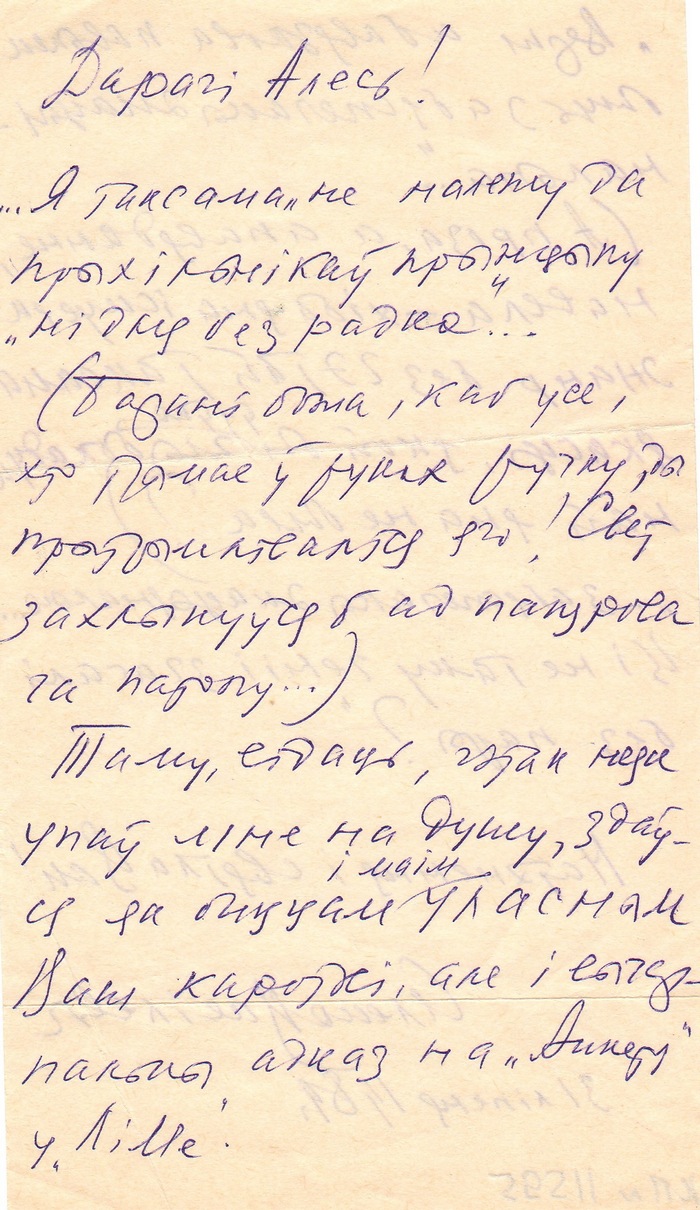 Дарагі Алесь!
...Я таксама „не належу да
прыхільнікаў прынцыпу
„ні дня без радка"...
(Барані божа, каб усе,
хто трымае ў руках ручку, ды
прытрымліваліся яго! Свет
захлынуўся б ад папяровага
патопу...)
Таму, відаць, гэтак
упаў мне на душу, здаў-
ся да і маім уласным
Ваш кароткі, але і вычар-
пальны адказ на „Анкету"
у „ЛіМе".